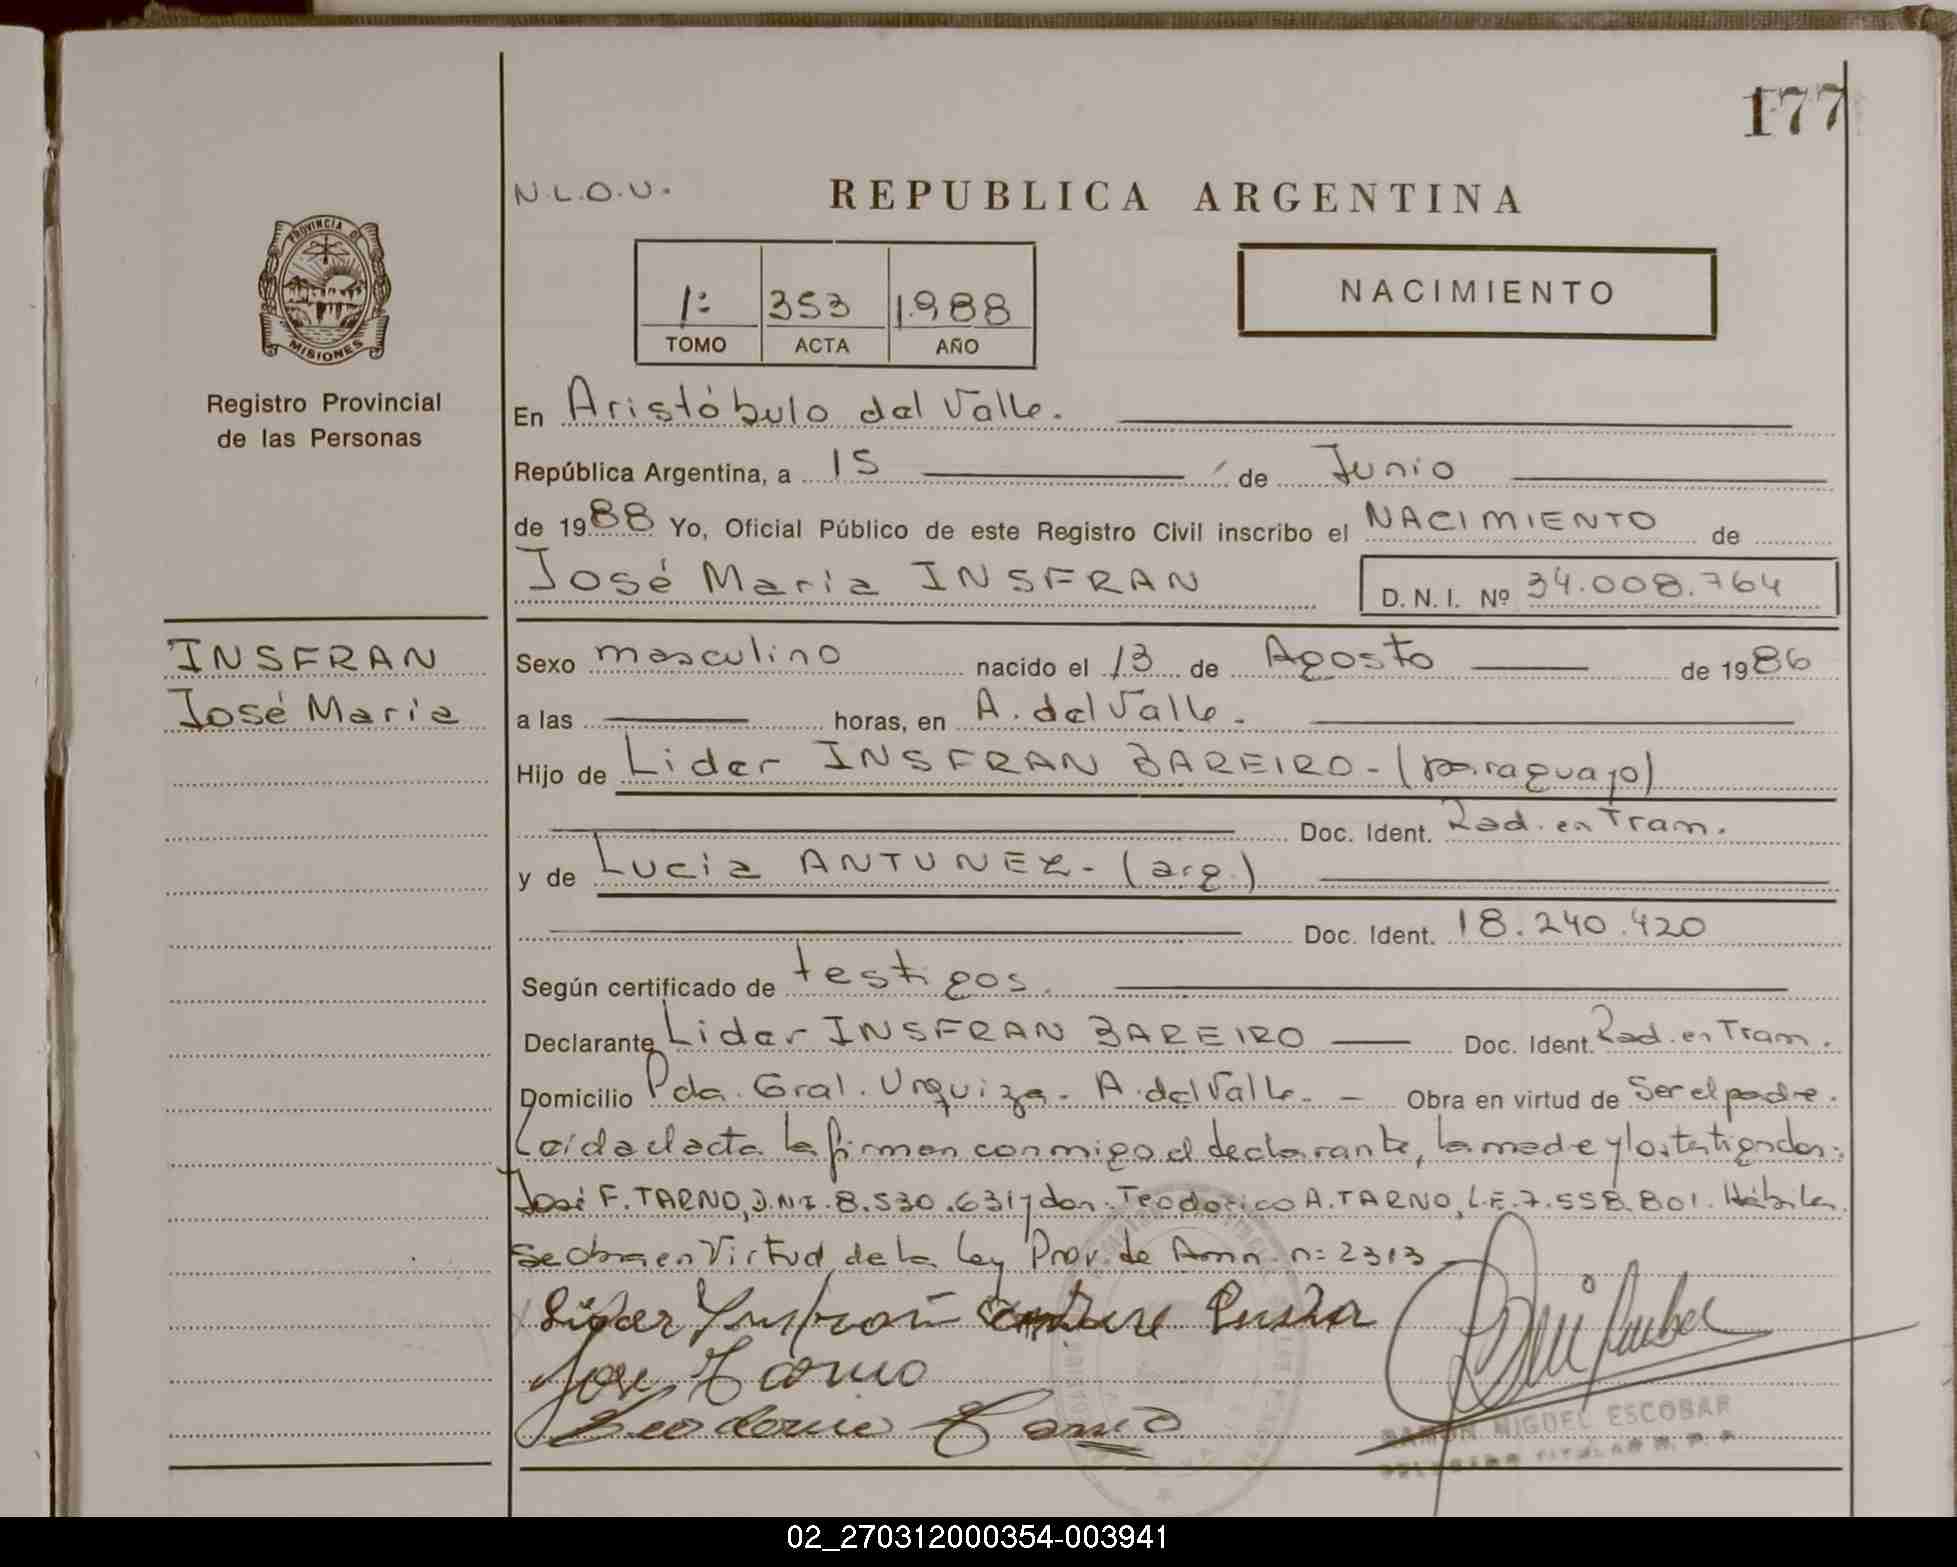 177
N.L.O.U.
REPUBLICA ARGENTINA
PROVINCIA DE
MISIONES
1º 353 1.988
TOMO ACTA AÑO
NACIMIENTO
Registro Provincial
de las Personas
En Aristóbulo del Valle.
República Argentina, a 15 de Junio
de 1988 Yo, Oficial Público de este Registro Civil inscribo el NACIMIENTO de
José Maria INSFRAN D.N.I. Nº 34.008.764
INSFRAN
José Maria
Sexo masculino nacido el 13 de Agosto de 1986
a las horas, en A. del Valle.
Hijo de Lider INSFRAN BAREIRO - (paraguayo)
Doc. Ident. Rad. en Tram.
y de Lucia ANTUNEZ - (arg.)
Doc. Ident. 18.240.420
Según certificado de testigos.
Declarante Lider INSFRAN BAREIRO Doc. Ident. Rad. en Tram.
Domicilio Pda. Gral. Urquiza - A. del Valle. - Obra en virtud de Ser el padre.
Leida el acta la firman conmigo el declarante, la madre y los testigos don:
José F. TARNO, D.N.I. 8.530.631 y don: Teodorico A. TARNO, L.E. 7.558.801. Hábiles.
Se obra en Virtud de la Ley Prov. de Amn. n= 2313
Lider Insfran Lusia
Jose Tarno
Teodorico Tarno
RAMON MIGUEL ESCOBAR
02_270312000354-003941